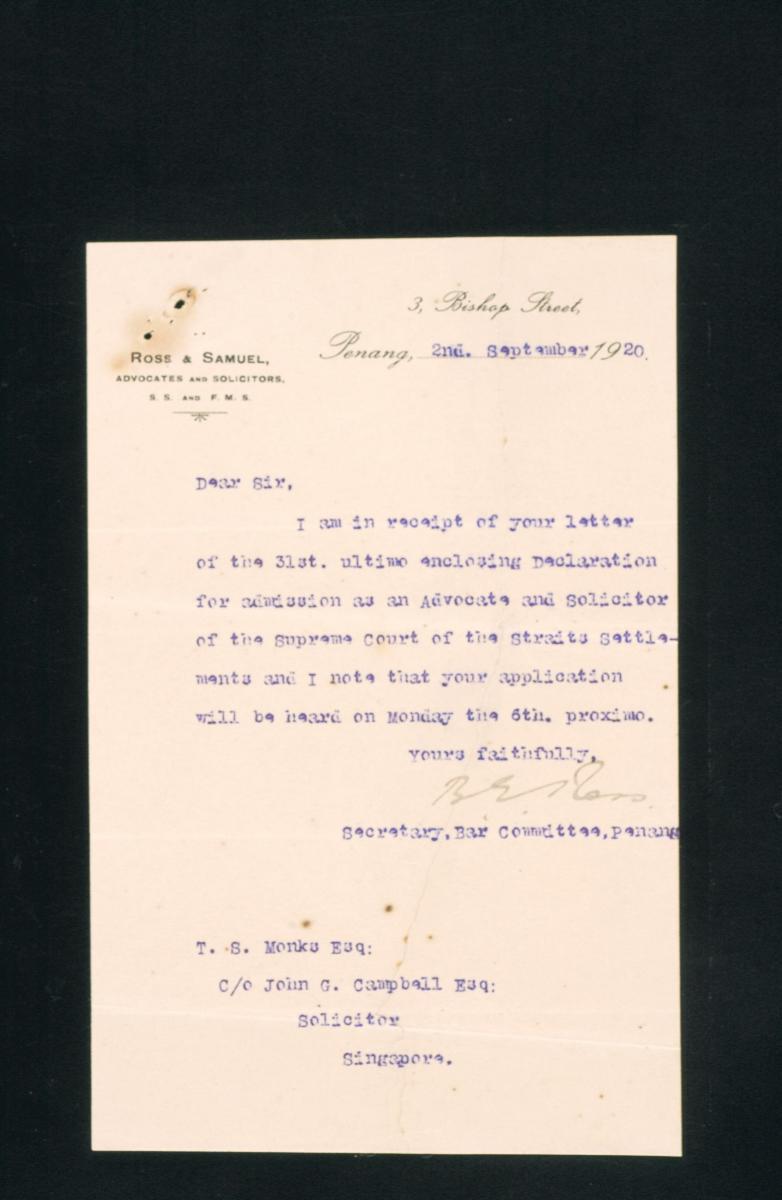 3, Bishop Street,
Penang, 2nd. September 1920.
ROSS & SAMUEL,
ADVOCATES AND SOLICITORS,
S. S. AND F. M. S.
Dear Sir,
I am in receipt of your letter
of the 31st. ultimo enclosing Declaration
for admission as an Advocate and Solicitor
of the Supreme Court of the Straits Settle-
ments and I note that your application
will be heard on Monday the 6th. proximo.
Yours faithfully,
Ross
Secretary, Bar Committee, Penang
T. S. Monks Esq:
C/o John G. Campbell Esq:
Solicitor
Singapore.